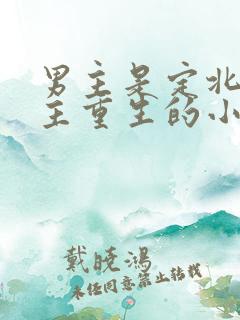 男主是定北
主重生的小
戴晓鸿
未经同意禁止转载